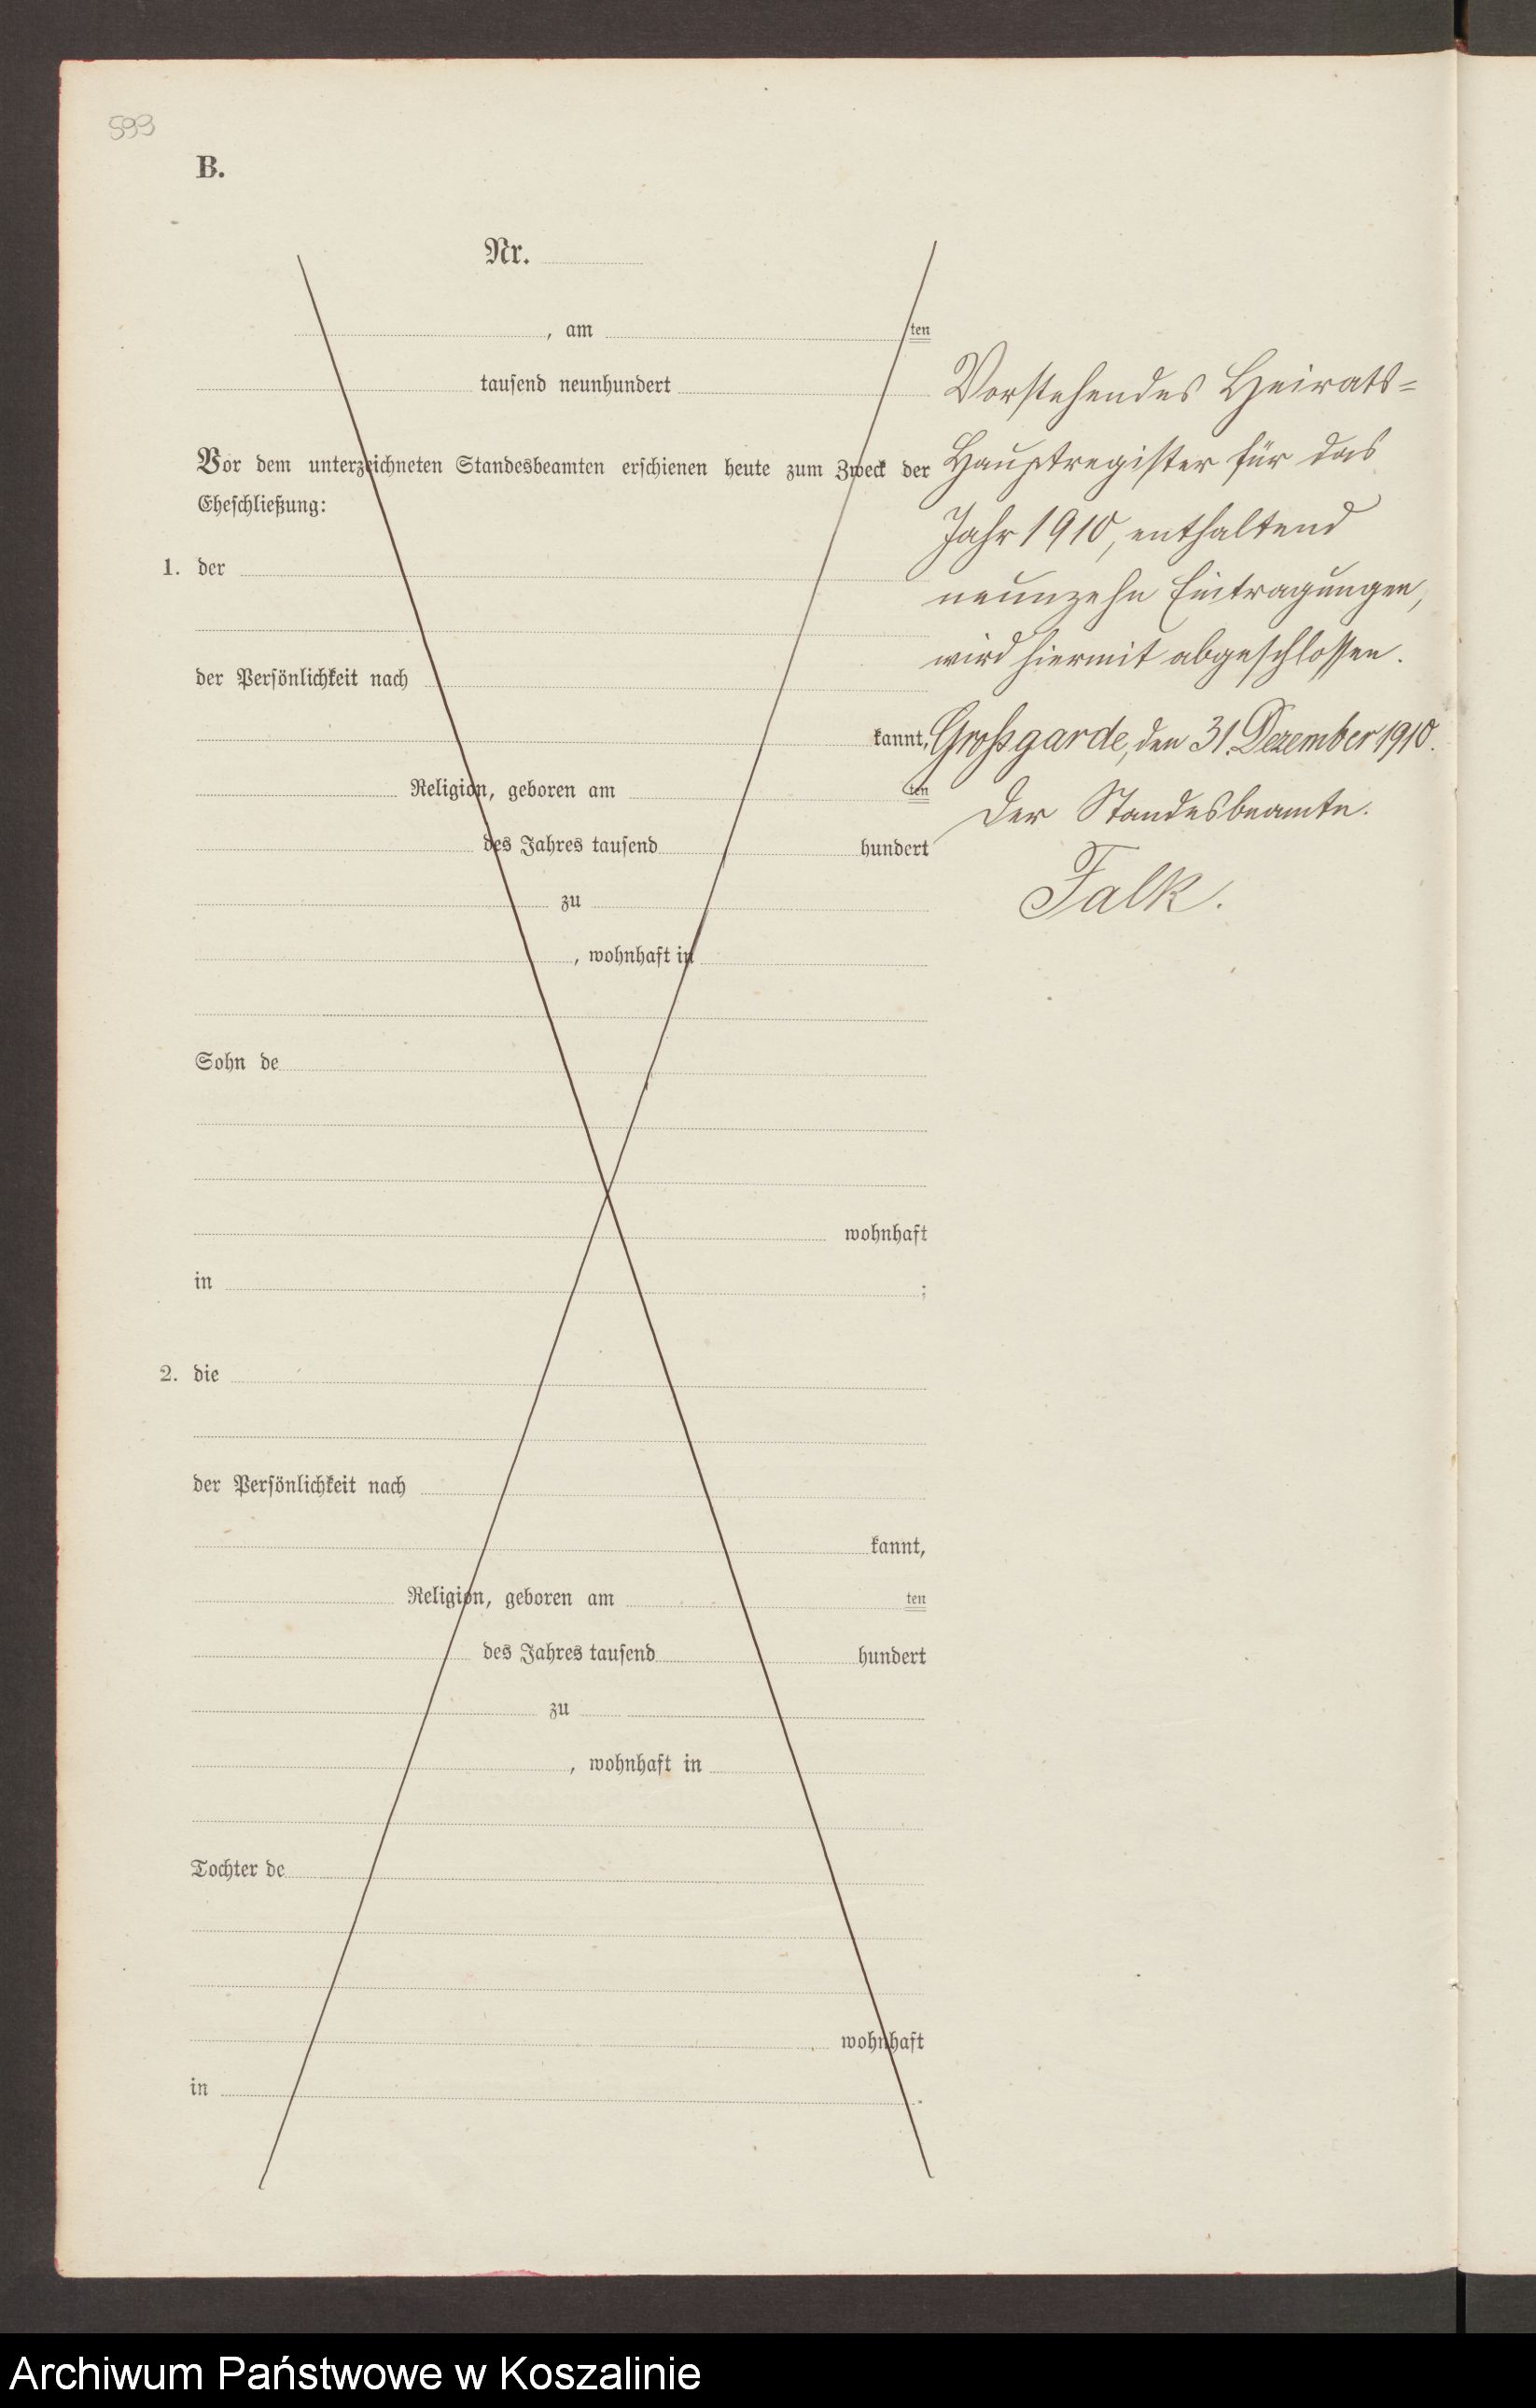 593
B.
Nr.
, am ten
tausend neunhundert
Vor dem unterzeichneten Standesbeamten erschienen heute zum Zweck der
Eheschließung:
1. der
der Persönlichkeit nach
kannt,
Religion, geboren am ten
des Jahres tausend hundert
zu
, wohnhaft in
Sohn de
wohnhaft
in ;
2. die
der Persönlichkeit nach
kannt,
Religion, geboren am ten
des Jahres tausend hundert
zu
, wohnhaft in
Tochter de
wohnhaft
in .
Vorstehendes Heirats=
Hauptregister für das
Jahr 1910, enthaltend
neunzehn Eintragungen,
wird hiermit abgeschlossen.
Großgarde, den 31. Dezember 1910.
Der Standesbeamte.
Falk.
Archiwum Państwowe w Koszalinie